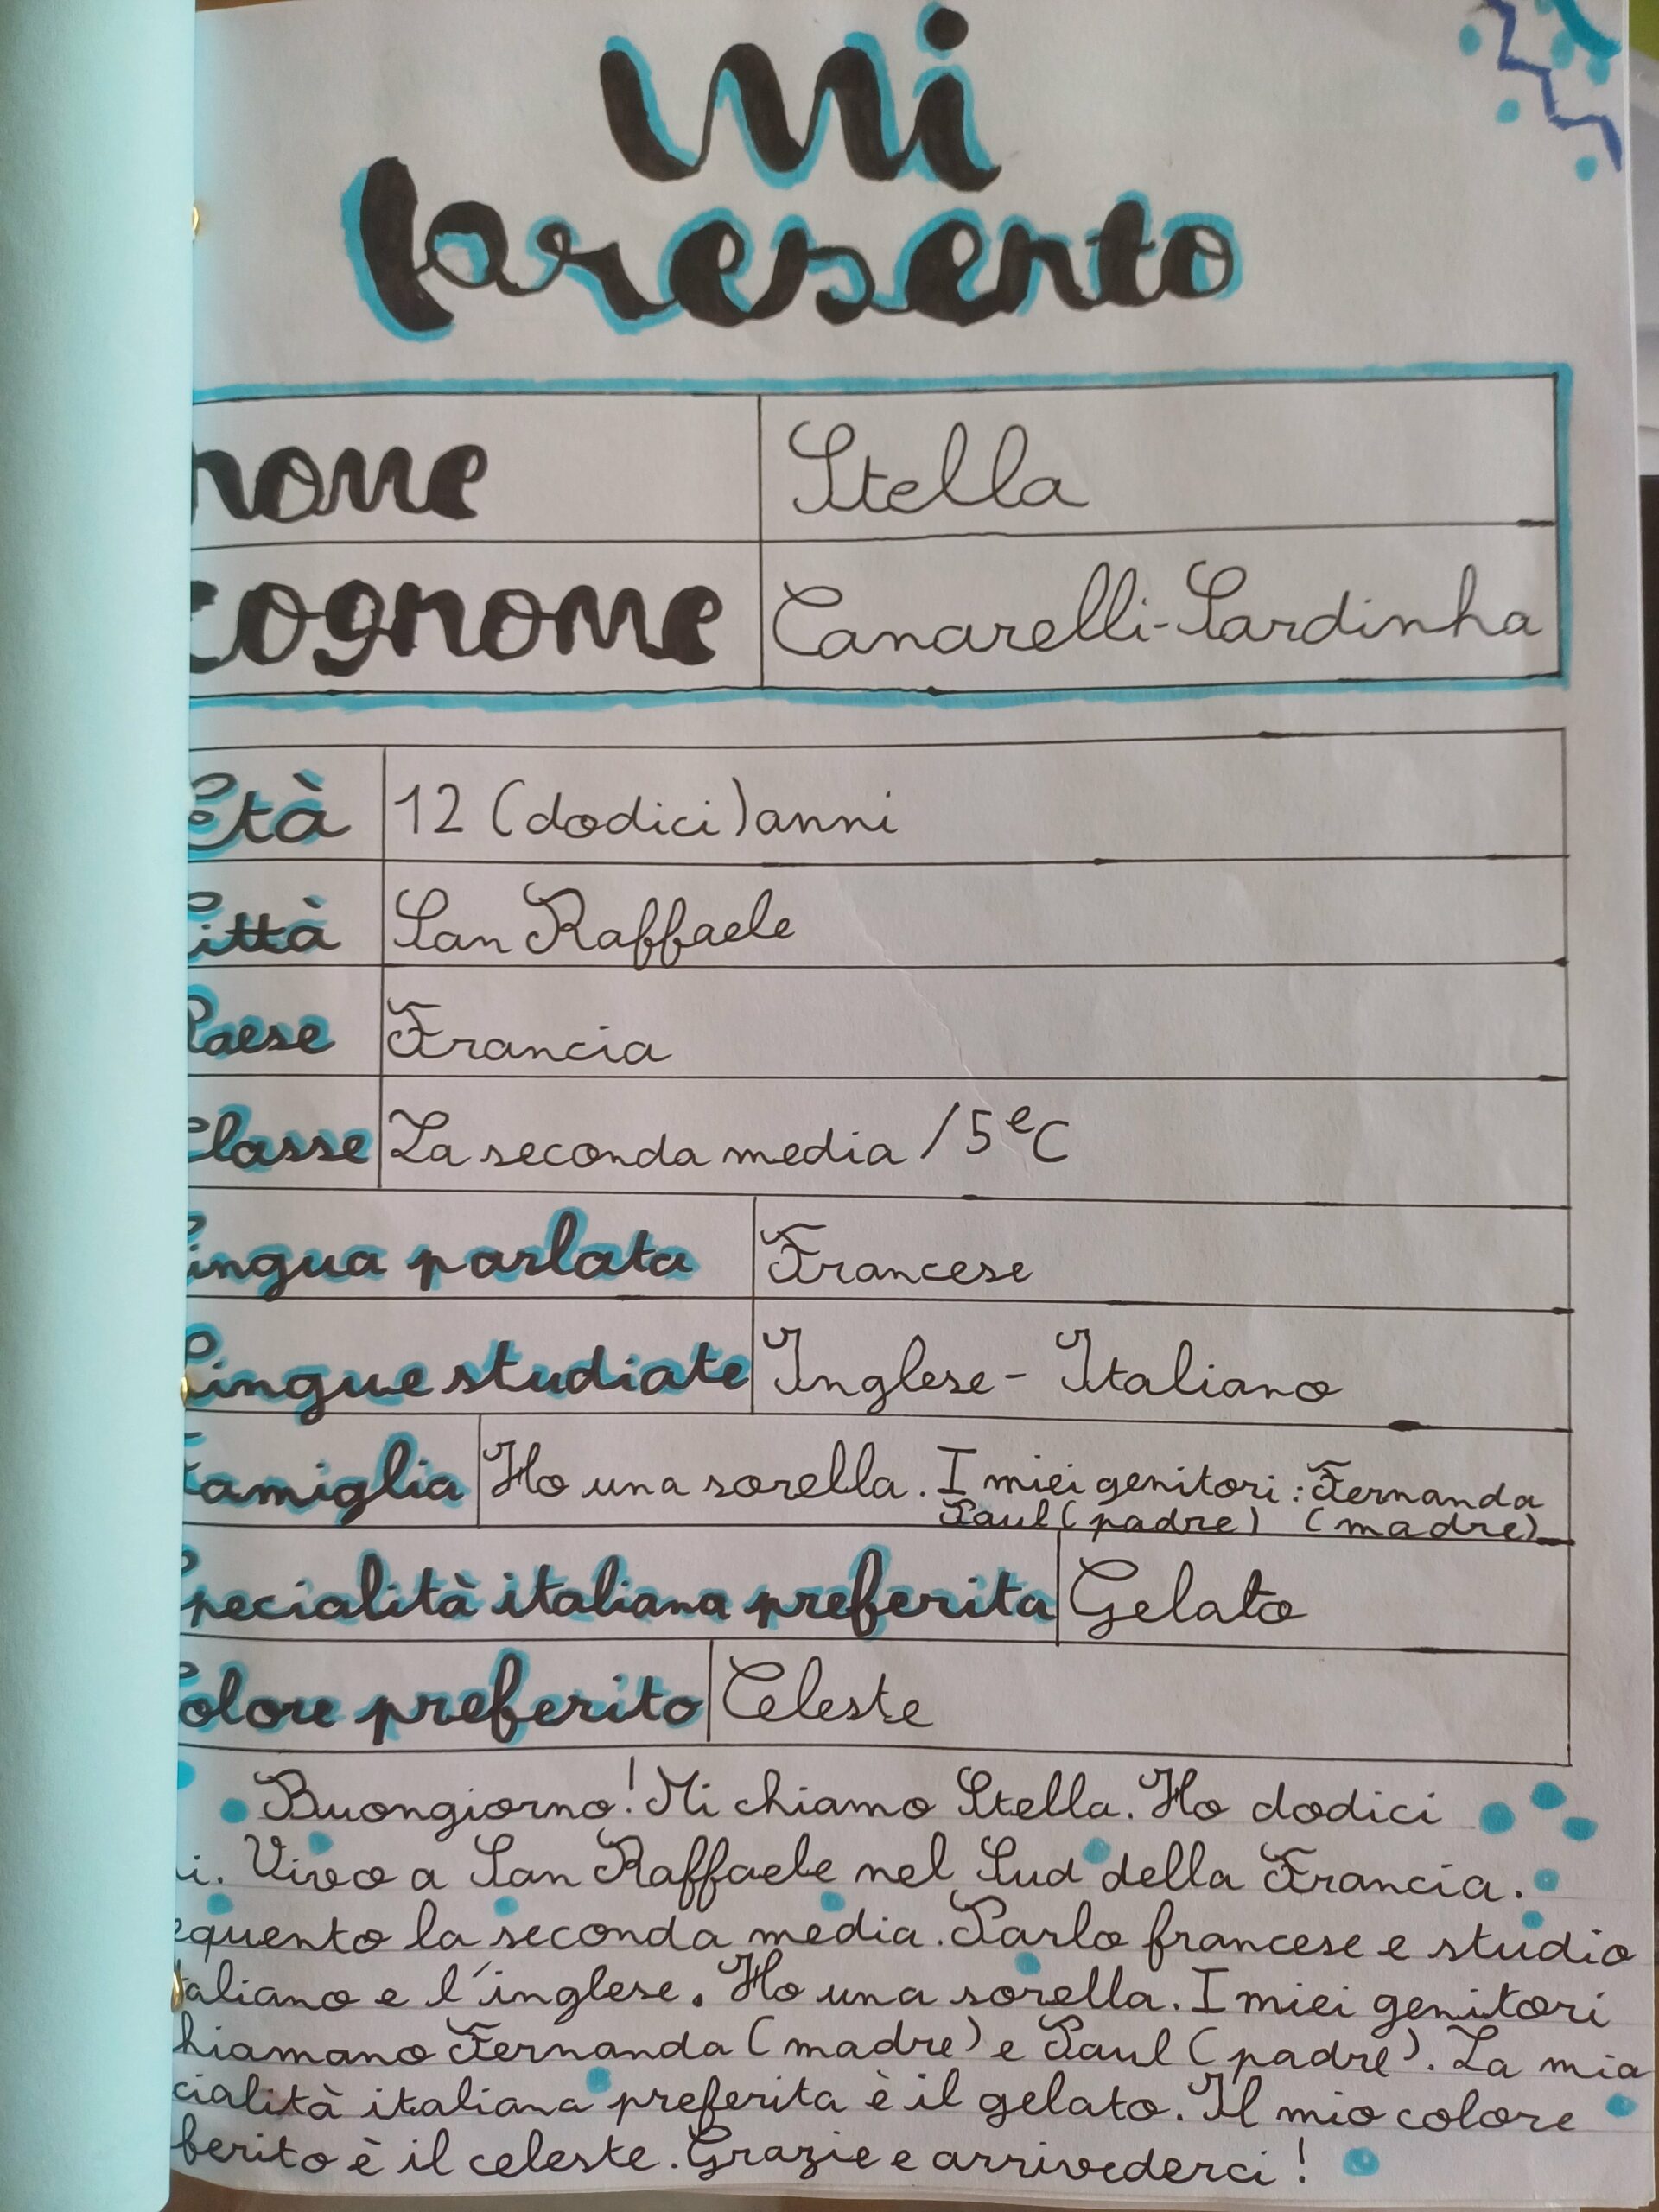 mi
presento
nome Stella
cognome Canarelli-Sardinha
Età 12 (dodici) anni
Città San Raffaele
Paese Francia
Classe La seconda media / 5eC
Lingua parlata Francese
Lingue studiate Inglese - Italiano
Famiglia Ho una sorella. I miei genitori : Fernanda
Paul (padre) (madre)
Specialità italiana preferita Gelato
Colore preferito Celeste
Buongiorno! Mi chiamo Stella. Ho dodici
i. Vivo a San Raffaele nel Sud della Francia.
equento la seconda media. Parlo francese e studio
taliano e l'inglese. Ho una sorella. I miei genitori
hiamano Fernanda (madre) e Paul (padre). La mia
cialità italiana preferita è il gelato. Il mio colore
berito è il celeste. Grazie e arrivederci !